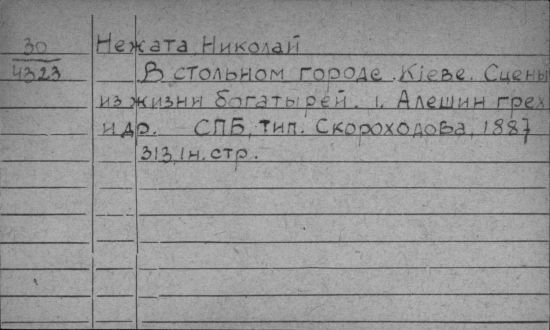 30 Нежата, Николай
4323 В стольном городе Кіеве. Сцены
из жизни богатырей. 1. Алешин грех
и др. СПБ, тип. Скороходова, 1887
313, 1 н. стр.